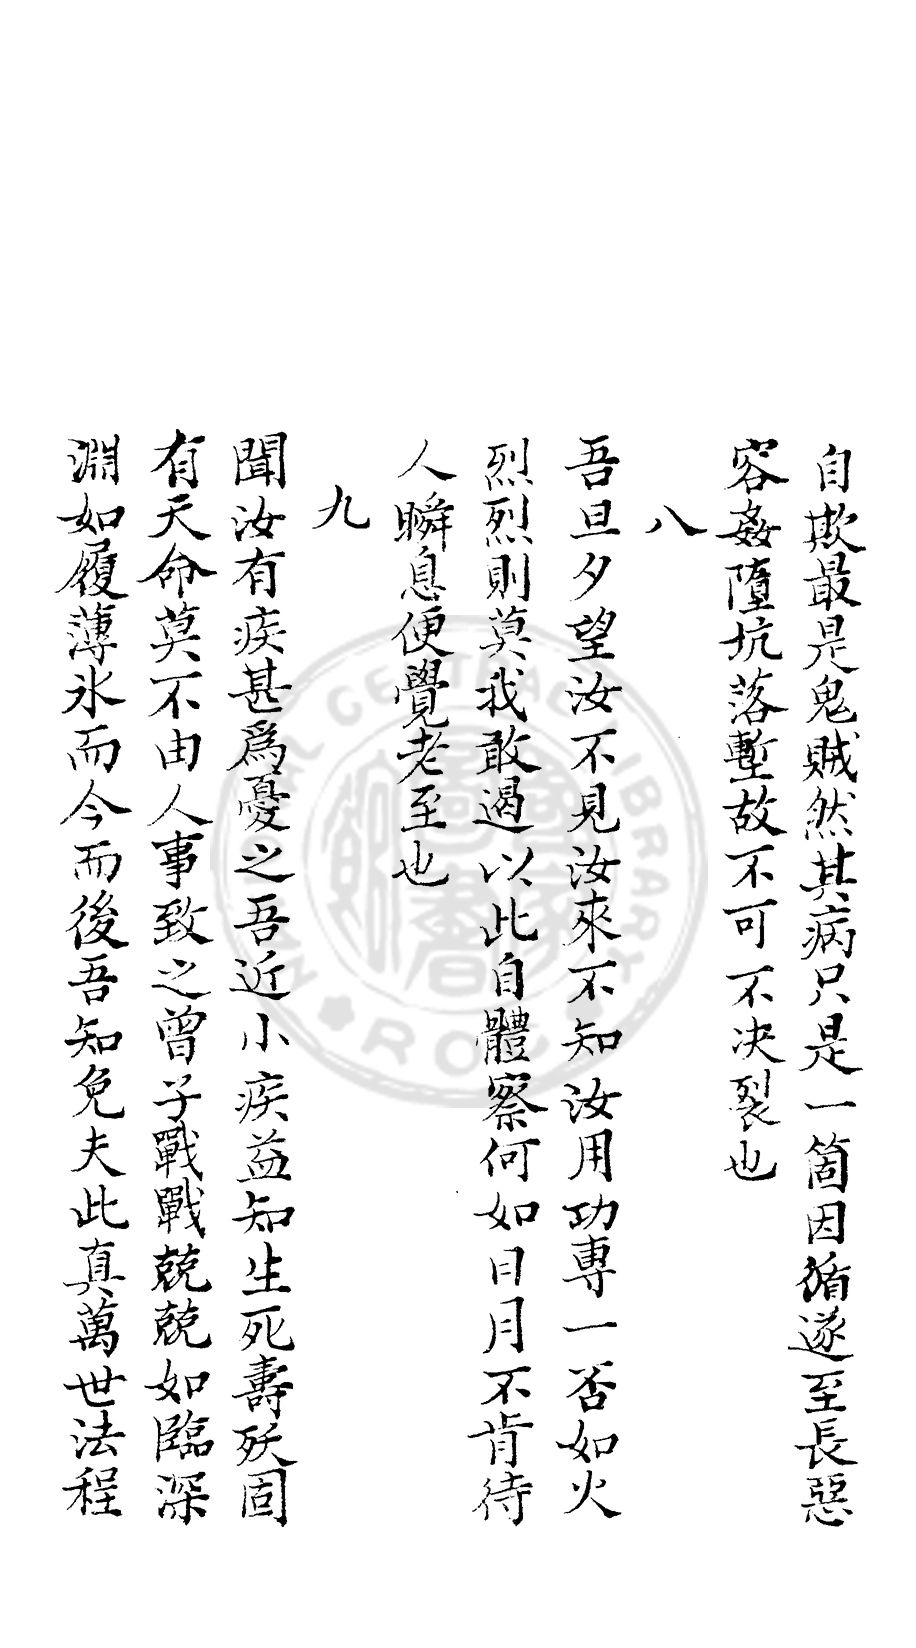 自欺最是鬼賊然其病只是一箇因循遂至長惡
容姦墮坑落塹故不可不决裂也
八
吾旦夕望汝不見汝來不知汝用功專一否如火
烈烈則莫我敢遏以此自體察何如日月不肯待
人瞬息便覺老至也
九
聞汝有疾甚爲憂之吾近小疾益知生死壽殀固
有天命莫不由人事致之曾子戰戰兢兢如臨深
淵如履薄氷而今而後吾知免夫此真萬世法程
NATIONAL CENTRAL LIBRARY
ROC